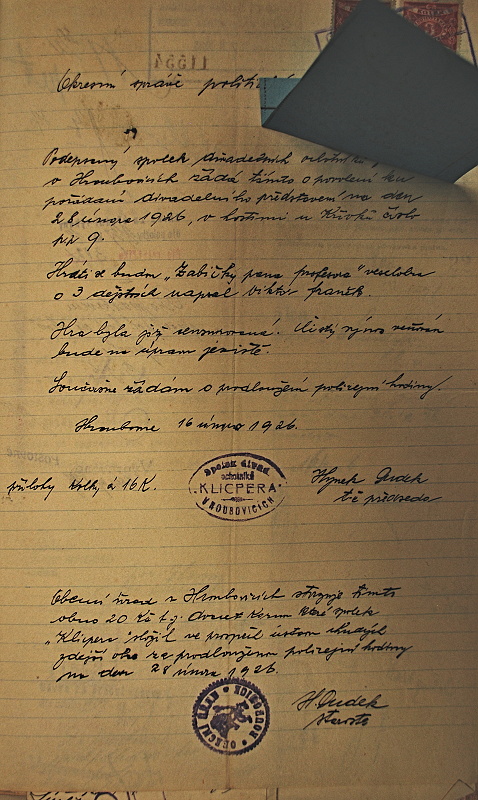 11554
Okresní správě politi
Podepsaný spolek divadelních ochotníků
v Hroubovicích žádá tímto o povolení ku
pořádání divadelního představení na den
28 února 1926, v hostinci u číslo
pp. 9.
Hráti se bude „Žabičky pana profesora" veselohra
o 3 dějstvích napsal Viktor
Hra byla již censurovaná. Čistý výnos věnován
bude na úpravu jeviště.
Současně žádám o prodloužení policejní hodiny.
Hroubovice 16 února 1926.
přílohy kolky á 16 K.
Spolek divad.
ochotníků
"KLICPERA"
V HROUBOVICÍCH
Hynek Dudek
t.č. předseda
Obecní úřad v Hroubovicích stvrzuje tímto
obnos 20 Kč t.j. dvacet korun které spolek
„Klicpera" složil ve prospěch ústavu chudých
zdejší obce za prodlouženou policejní hodiny
na den 28 února 1926.
OBECNÍ ÚŘAD
H. Dudek
starosta